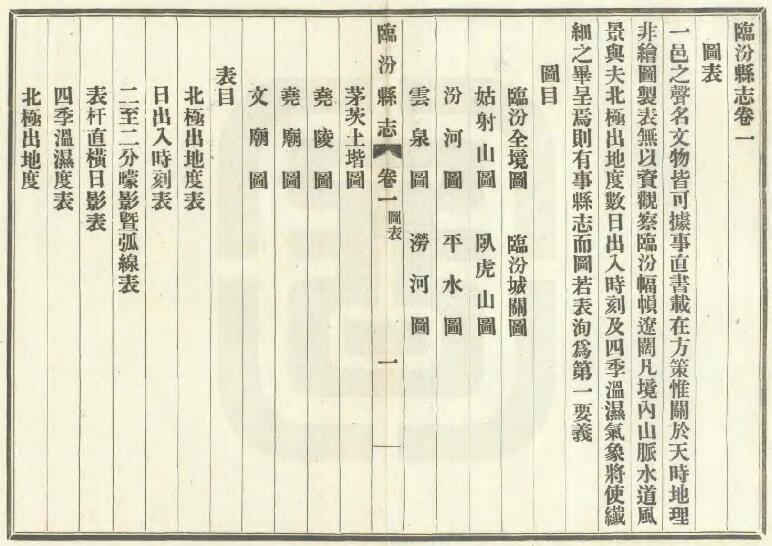 臨汾縣志卷一
圖表
一邑之聲名文物皆可據事直書載在方策惟關於天時地理
非繪圖製表無以資觀察臨汾幅幀遼闊凡境內山脈水道風
景與夫北極出地度數日出入時刻及四季溫濕氣象將使纖
細之畢呈焉則有事縣志而圖若表洵爲第一要義
圖目
臨汾全境圖 臨汾城關圖
姑射山圖 臥虎山圖
汾河圖 平水圖
雲泉圖 澇河圖
臨汾縣志 卷一 圖表 一
茅茨土堦圖
堯陵圖
堯廟圖
文廟圖
表目
北極出地度表
日出入時刻表
二至二分曚影暨弧線表
表杆直橫日影表
四季溫濕度表
北極出地度